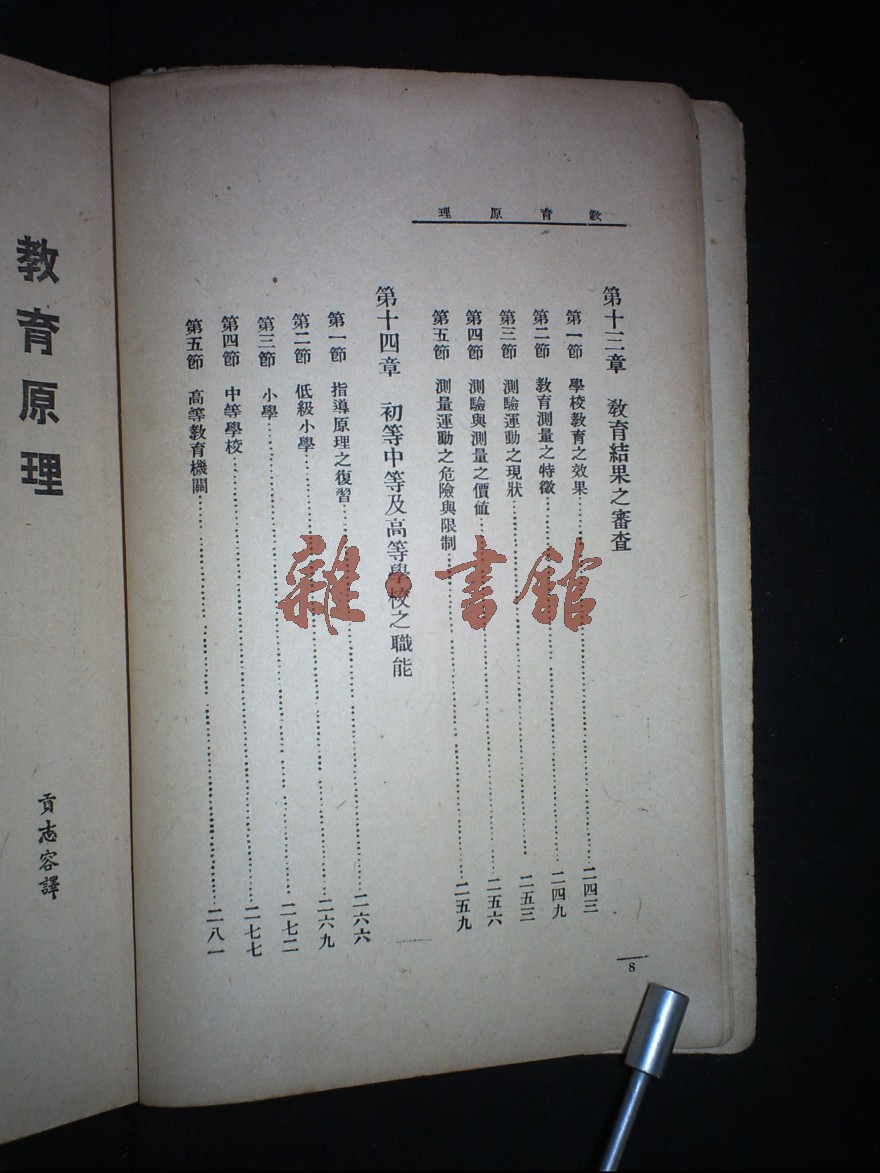 教育原理
第十三章 教育結果之審査
第一節 學校教育之效果……二四三
第二節 教育測量之特徵……二四九
第三節 測驗運動之現狀……二五三
第四節 測驗與測量之價値……二五六
第五節 測量運動之危險與限制……二五九
第十四章 初等中等及高等學校之職能
第一節 指導原理之復習……二六六
第二節 低級小學……二六九
第三節 小學……二七二
第四節 中等學校……二七七
第五節 高等教育機關……二八一
8
教育原理
貢志容譯
雜·書館